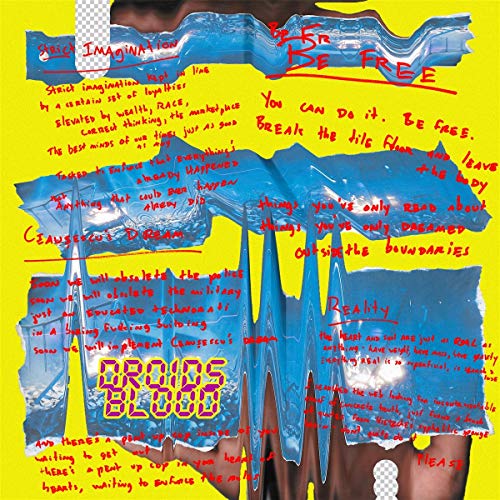 Strict Imagination
Strict imagination kept in line
by a certain set of loyalties
Elevated by wealth, race,
correct thinking, the marketplace
The best minds of our times just as good
as any
Tasked to enforce that everything's
already happened
Anything that could ever happen
already did
Ceausescu's Dream
Soon we will obsolete the police
Soon we will obsolete the military
Just an educated technorati
in a boring fucking building
Soon we will implement Ceausescu's dream
DROIDS
BLOOD
And there's a pent up cop inside of you
waiting to get out
There's a pent up cop in your heart of
hearts, waiting to enforce the rules
Be Fr
Be Free
You can do it. Be free.
Break the tile floor and leave
the body
Things you've only read about
Things you've only dreamed
Outside the boundaries
Reality
The heart and soul are just as real as
anything - have weight, have mass, have gravity
Everything real is so
I searched the web looking for
concrete truth, just found a
quotes from Nietzsche's syphilitic sponge
Please